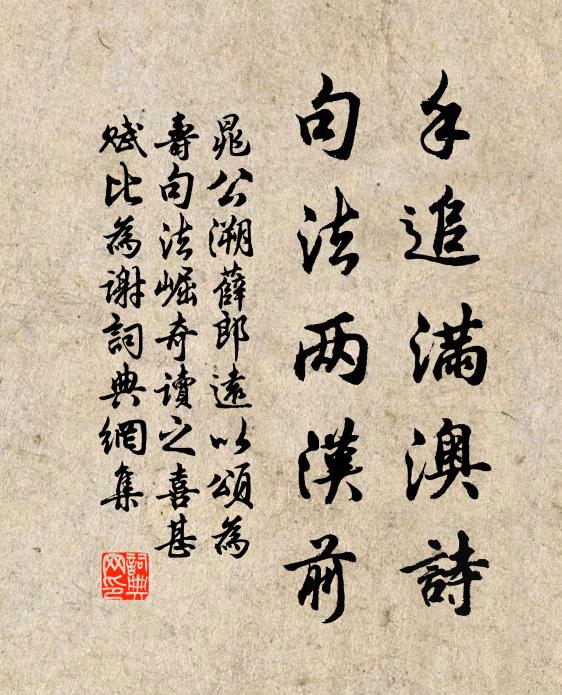 手追满澳詩
句法两漢前
晁公溯薛郎遠以頌為
壽句法崛奇讀之喜甚
賦比為謝詞典網集
詞典
网印